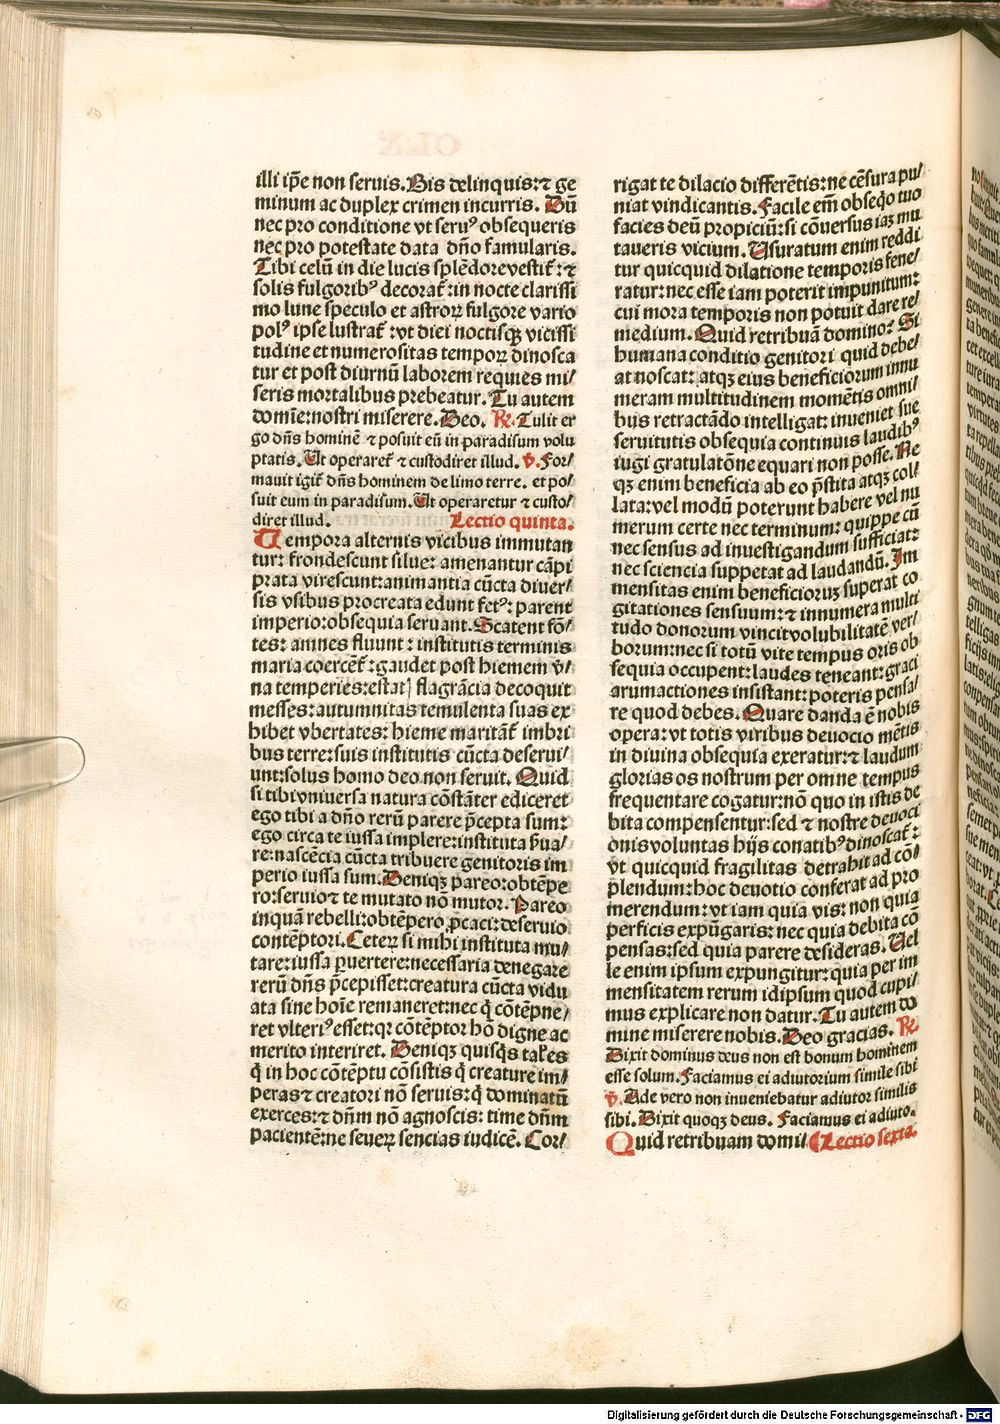 illi ip̄e non seruis. Bis delinquis: ⁊ ge
minum ac duplex crimen incurris. Dū
nec pro conditione vt seruꝰ obsequeris
nec pro potestate data dn̄o famularis.
Tibi celū in die lucis splēdore vestit᷑: ⁊
solis fulgoribꝰ decorat᷑: in nocte clarissi
mo lune speculo et astroꝝ fulgore vario
polꝰ ipse lustrat᷑: vt diei noctisqꝫ vicissi
tudine et numerositas tempoꝝ dinosca
tur et post diurnū laborem requies mi/
seris mortalibus prebeatur. Tu autem
domīe: nostri miserere. Deo. ℞. Tulit er
go dn̄s hominē ⁊ posuit eū in paradisum volu
ptatis. Ut operaret᷑ ⁊ custodiret illud. ℣. For/
mauit igit᷑ dn̄s hominem de limo terre. et po/
suit eum in paradisum. Ut operaretur ⁊ custo/
diret illud. Lectio quinta.
Tempora alternis vicibus immutan
tur: frondescunt silue: amenantur cāpi
prata virescunt: animantia cūcta diuer/
sis vsibus procreata edunt fetꝰ: parent
imperio: obsequia seruant. Scatent fō/
tes: amnes fluunt: institutis terminis
maria coercet᷑: gaudet post hiemem v̄/
na temperies: estat] flagrācia decoquit
messes: autumnitas temulenta suas ex
hibet vbertates: hieme maritāt᷑ imbri
bus terre: suis institutis cūcta deserui/
unt: solus homo deo non seruit. Quid
si tibi vniuersa natura cōstāter ediceret
ego tibi a dn̄o rerū parere p̄cepta sum:
ego circa te iussa implere: instituta ẜua/
re: nascēcia cūcta tribuere genitoris im
perio iussa sum. Deniqꝫ pareo: obtēpe
ro: seruio ⁊ te mutato nō mutor. Pareo
inquā rebelli: obtēpero ꝓcaci: deseruio
contēptori. Ceteꝝ si mihi instituta mu/
tare: iussa ꝑuertere: necessaria denegare
rerū dn̄s p̄cepisset: creatura cūcta vidu
ata sine hoīe remaneret: nec q̄ cōtēpne/
ret vlteriꝰ esset: qꝛ cōtēptor hō digne ac
merito interiret. Deniqꝫ quisq̄s tales
q̄ in hoc cōtēptu cōsistis q̄ creature im/
peras ⁊ creatori nō seruis: q̄ dominatū
exerces: ⁊ dn̄m nō agnoscis: time dn̄m
pacientē: ne seueꝝ sencias iudicē. Cor/
rigat te dilacio differētis: ne cēsura pu/
niat vindicantis. Facile em̄ obseq̄o tuo
facies deū propiciū: si cōuersus iaꝫ mu
taueris vicium. Usuratum enim reddi
tur quicquid dilatione temporis fene/
ratur: nec esse iam poterit impunitum:
cui mora temporis non potuit dare re/
medium. Quid retribuā domino? Si
humana conditio genitori quid debe/
at noscat: atqꝫ eius beneficiorum innu
meram multitudinem momētis omni/
bus retractādo intelligat: inueniet sue
seruitutis obsequia continuis laudibꝰ
iugi gratulatōne equari non posse. Ne
qꝫ enim beneficia ab eo p̄stita atqꝫ col/
lata: vel modū poterunt habere vel nu
merum certe nec terminum: quippe cū
nec sensus ad inuestigandum sufficiat:
nec sciencia suppetat ad laudandū. Im
mensitas enim beneficioruꝫ superat co
gitationes sensuum: ⁊ innumera multi
tudo donorum vincit volubilitatē ver/
borum: nec si totū vite tempus oris ob
sequia occupent: laudes teneant: graci
arum actiones insistant: poteris pensa/
re quod debes. Quare danda ē nobis
opera: vt totis viribus deuocio mētis
in diuina obsequia exeratur: ⁊ laudum
glorias os nostrum per omne tempus
frequentare cogatur: nō quo in istis de
bita compensentur: sed ⁊ nostre deuoci
onis voluntas hijs conatibꝰ dinoscat᷑:
vt quicquid fragilitas detrahit ad cō/
plendum: hoc deuotio conferat ad pro
merendum: vt iam quia vis: non quia
perficis expūgaris: nec quia debita cō
pensas: sed quia parere desideras. Uel
le enim ipsum expungitur: quia per im
mensitatem rerum idipsum quod cupi/
mus explicare non datur. Tu autem do
mine miserere nobis. Deo gracias. ℞.
Dixit dominus deus non est bonum hominem
esse solum. Faciamus ei adiutorium simile sibi
℣. Ade vero non inueniebatur adiutor similis
sibi. Dixit quoqꝫ deus. Faciamus ei adiuto.
Quid retribuam domi/ ⸿ Lectio sexta.
Digitalisierung gefördert durch die Deutsche Forschungsgemeinschaft - DFG